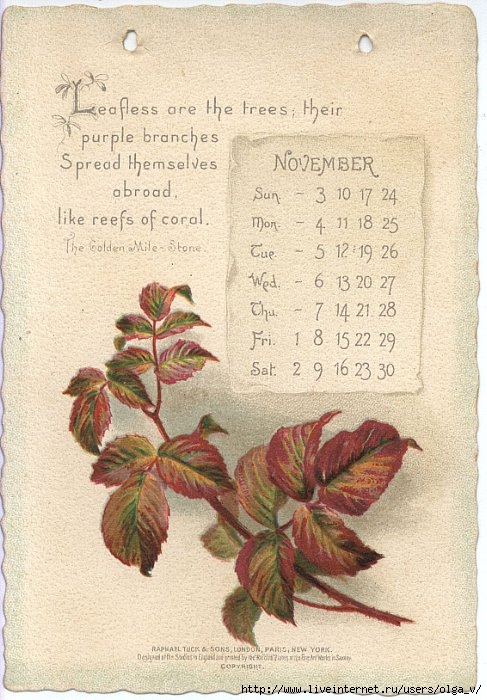 Leafless are the trees; their
purple branches
Spread themselves
abroad,
like reefs of coral.
The Golden Mile-Stone.
NOVEMBER
Sun. - 3 10 17 24
Mon. - 4 11 18 25
Tue. - 5 12 19 26
Wed. - 6 13 20 27
Thu. - 7 14 21 28
Fri. 1 8 15 22 29
Sat. 2 9 16 23 30
RAPHAEL TUCK & SONS, LONDON, PARIS, NEW YORK.
Designed at the Studios in England and printed by the at the Fine Art Works in Saxony.
COPYRIGHT.
http://www.liveinternet.ru/users/olga_v/